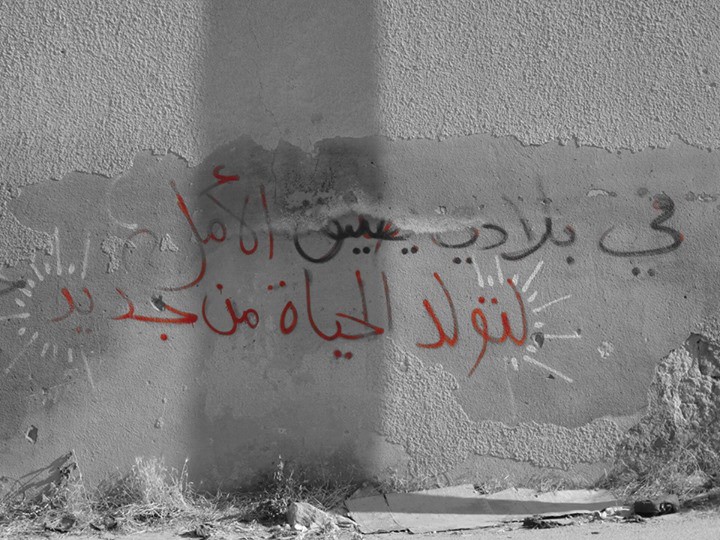 في بلادي يعيش الأمل
لتولد الحياة من جديد